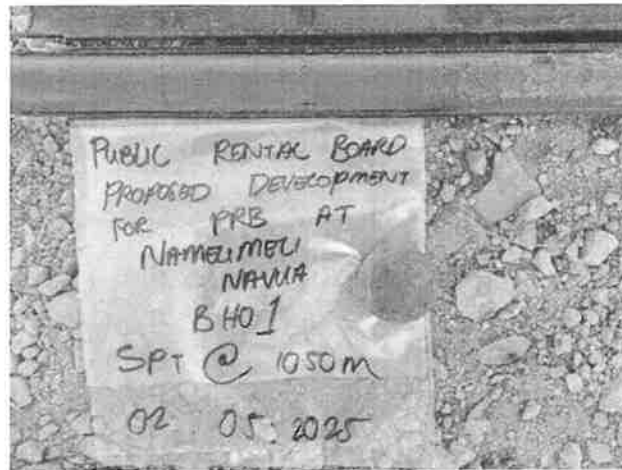 PUBLIC RENTAL BOARD
PROPOSED DEVELOPMENT
FOR PRB AT
NAMELIMELI
NAVUA
BH01
SPT @ 1050m
02.05.2025